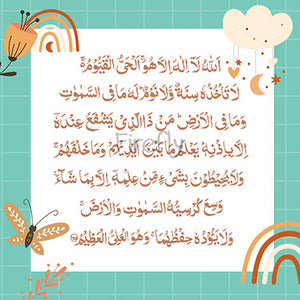 اَللّٰهُ لَاۤ اِلٰهَ اِلَّا هُوَۚ اَلْحَیُّ الْقَیُّوْمُ۬ۚ
لَا تَاْخُذُهٗ سِنَةٌ وَّلَا نَوْمٌؕ لَهٗ مَا فِی السَّمٰوٰتِ
وَمَا فِی الْاَرْضِؕ مَنْ ذَا الَّذِیْ یَشْفَعُ عِنْدَهٗۤ
اِلَّا بِاِذْنِهٖؕ یَعْلَمُ مَا بَیْنَ اَیْدِیْهِمْ وَمَا خَلْفَهُمْۚ
وَلَا یُحِیْطُوْنَ بِشَیْءٍ مِّنْ عِلْمِهٖۤ اِلَّا بِمَا شَآءَۚ
وَسِعَ كُرْسِیُّهُ السَّمٰوٰتِ وَالْاَرْضَۚ
وَلَا یَـُٔوْدُهٗ حِفْظُهُمَاۚ وَهُوَ الْعَلِیُّ الْعَظِیْمُ
Firefly